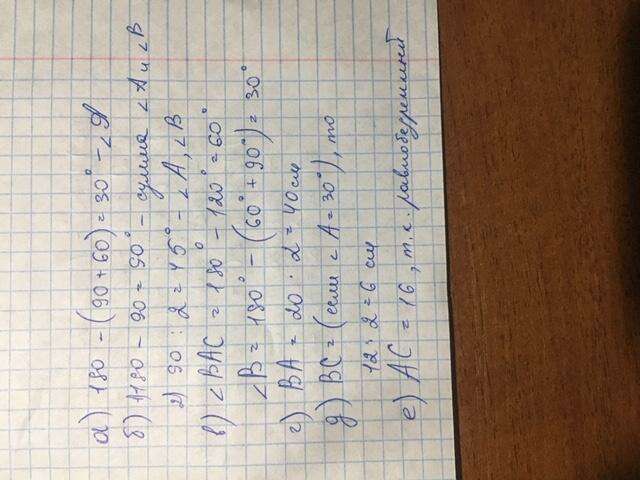 а) 180 - (90 + 60) = 30° - ∠А
б) 1) 180 - 90 = 90° - сумма ∠А и ∠В
2) 90 : 2 = 45° - ∠А, ∠В
в) ∠ВАС = 180° - 120° = 60°
∠В = 180° - (60° + 90°) = 30°
г) ВА = 20 · 2 = 40 см
д) ВС = (если ∠А = 30°), то
12 : 2 = 6 см
е) АС = 16, т.к. равнобедренный